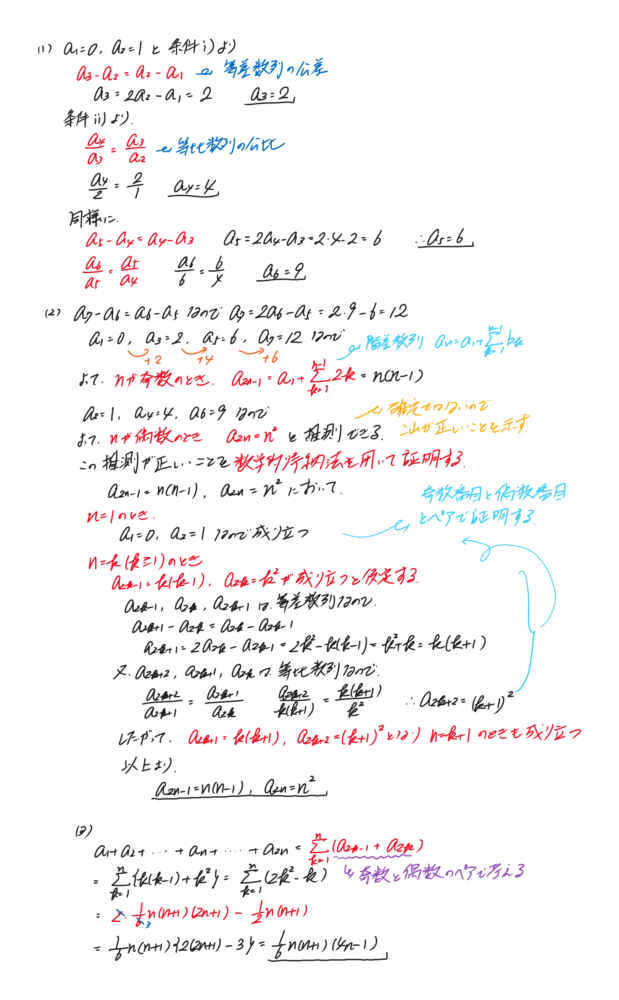 (1) a₁=0, a₂=1 と 条件 i) より
a₃-a₂=a₂-a₁ 等差数列の公差
a₃=2a₂-a₁=2 a₃=2
条件 ii) より
a₄/a₃=a₃/a₂ 等比数列の公比
a₄/2=2/1 a₄=4
同様に
a₅-a₄=a₄-a₃ a₅=2a₄-a₃=2・4-2=6 ∴a₅=6
a₆/a₅=a₅/a₄ a₆/6=6/4 a₆=9
(2) a₇-a₆=a₆-a₅ なので a₇=2a₆-a₅=2・9-6=12
a₁=0, a₃=2, a₅=6, a₇=12 なので
+2 +4 +6 階差数列 aₙ=a₁+Σ[k=1→n-1]bₖ
よって nが奇数のとき, a₂ₙ₋₁=a₁+Σ[k=1→n-1]2k=n(n-1)
a₂=1, a₄=4, a₆=9 なので 確定ではないので
よって nが偶数のとき a₂ₙ=n² と推測できる. これが正しいことを示す
この推測が正しいことを数学的帰納法を用いて証明する.
a₂ₙ₋₁=n(n-1), a₂ₙ=n² において.
n=1のとき. 奇数番目と偶数番目
a₁=0, a₂=1 なので成り立つ とペアで証明する.
n=k(k≧1)のとき
a₂ₖ₋₁=k(k-1), a₂ₖ=k²が成り立つと仮定する.
a₂ₖ₋₁, a₂ₖ, a₂ₖ₊₁は等差数列なので.
a₂ₖ₊₁-a₂ₖ=a₂ₖ-a₂ₖ₋₁
a₂ₖ₊₁=2a₂ₖ-a₂ₖ₋₁=2k²-k(k-1)=k²+k=k(k+1)
又 a₂ₖ₊₂, a₂ₖ₊₁, a₂ₖは等比数列なので.
a₂ₖ₊₂/a₂ₖ₊₁=a₂ₖ₊₁/a₂ₖ a₂ₖ₊₂/k(k+1)=k(k+1)/k² ∴a₂ₖ₊₂=(k+1)²
したがって. a₂ₖ₊₁=k(k+1), a₂ₖ₊₂=(k+1)²となり n=k+1のときも成り立つ
以上より.
a₂ₙ₋₁=n(n-1), a₂ₙ=n²
(3)
a₁+a₂+……+aₙ+……+a₂ₙ=Σ[k=1→n](a₂ₖ₋₁+a₂ₖ)
=Σ[k=1→n]{k(k-1)+k²}=Σ[k=1→n](2k²-k) 奇数と偶数のペアで考える
=2・1/6 n(n+1)(2n+1)-1/2 n(n+1)
3
=1/6 n(n+1){2(2n+1)-3}=1/6 n(n+1)(4n-1)